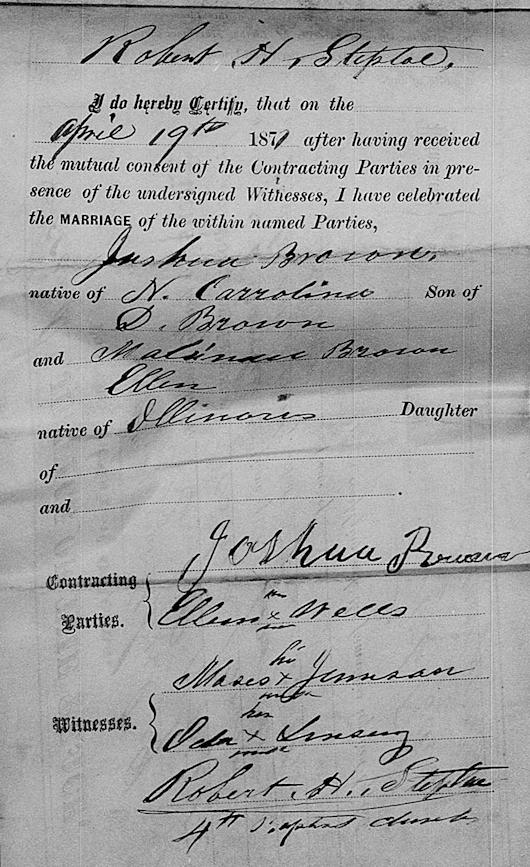 Robert H. Steptoe.
I do hereby Certify, that on the
April 19th 1871 after having received
the mutual consent of the Contracting Parties in pre-
sence of the undersigned Witnesses, I have celebrated
the MARRIAGE of the within named Parties,
Joshua Brown.
native of N. Carrolina Son of
D. Brown
and Brown
Ellen
native of Illinois Daughter
of
and
Joshua Brown
Contracting
Parties.
Ellen her x mark Wells
Moses his x mark
Witnesses.
her x mark
Robert. H. Steptoe
4th Baptist church